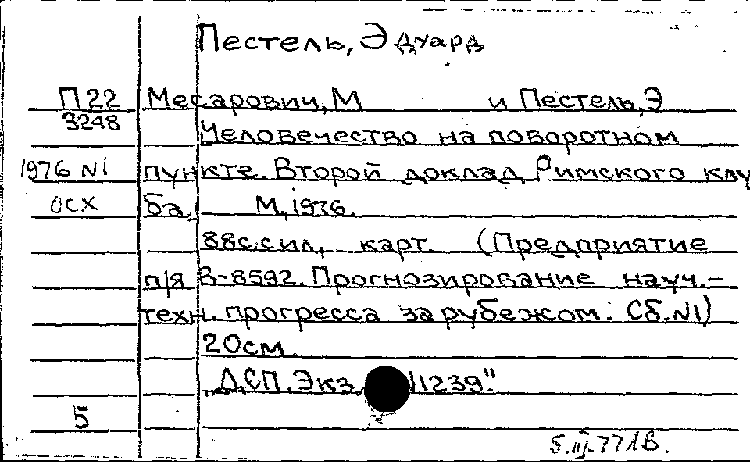 Пестель, Эдуард
П22 Месарович, М и Пестель, Э
3248 Человечество на поворотном
1976 N1 пункте. Второй доклад Римского клу
ОСХ ба, М, 1976.
88с.сил, карт. (Предприятие
п/я В-8592. Прогнозирование науч.-
техн. прогресса зарубежом: Сб. N1)
20см
„ДСП. Экз. 11239."
5
5.III.77